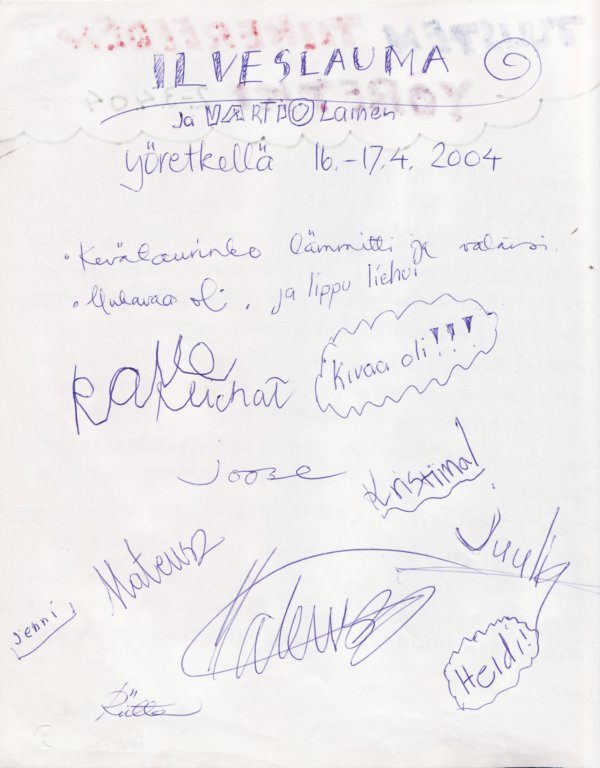 ILVESLAUMA
ja VARTIOLainen
yöretkellä 16.-17.4. 2004
• Kevätaurinko lämmitti ja valaisi!
• Mukavaa oli, ja lippu liehui
Kivaa oli!!!
Joose
Kristiina!
Mateusz
Tuulia
Jenni
Mateusz
Heidi!
Riitta